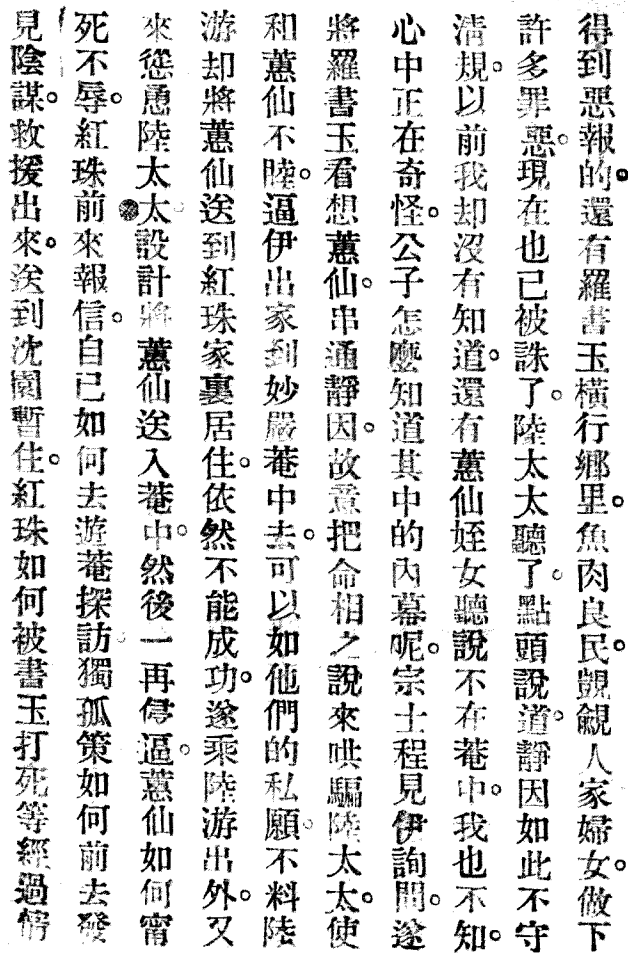 得到惡報的。還有羅書玉橫行鄉里。魚肉良民。覬覦人家婦女。做下
許多罪惡。現在也已被誅了。陸太太聽了。點頭說道。靜因如此不守
清規。以前我却沒有知道。還有蕙仙姪女聽說不在菴中。我也不知。
心中正在奇怪。公子怎麼知道其中的內幕呢。宗士程見伊詢問。遂
將羅書玉看想蕙仙。串通靜因。故意把命相之說來哄騙陸太太。使
和蕙仙不睦。逼伊出家到妙嚴菴中去。可以如他們的私願。不料陸
游却將蕙仙送到紅珠家裏居住。依然不能成功。遂乘陸游出外。又
來慫恿陸太太。設計將蕙仙送入菴中。然後一再逼。蕙仙如何甯
死不辱。紅珠前來報信。自己如何去游菴探訪。獨孤策如何前去發
見陰謀。救援出來。送到沈園暫住。紅珠如何被書玉打死等經過情